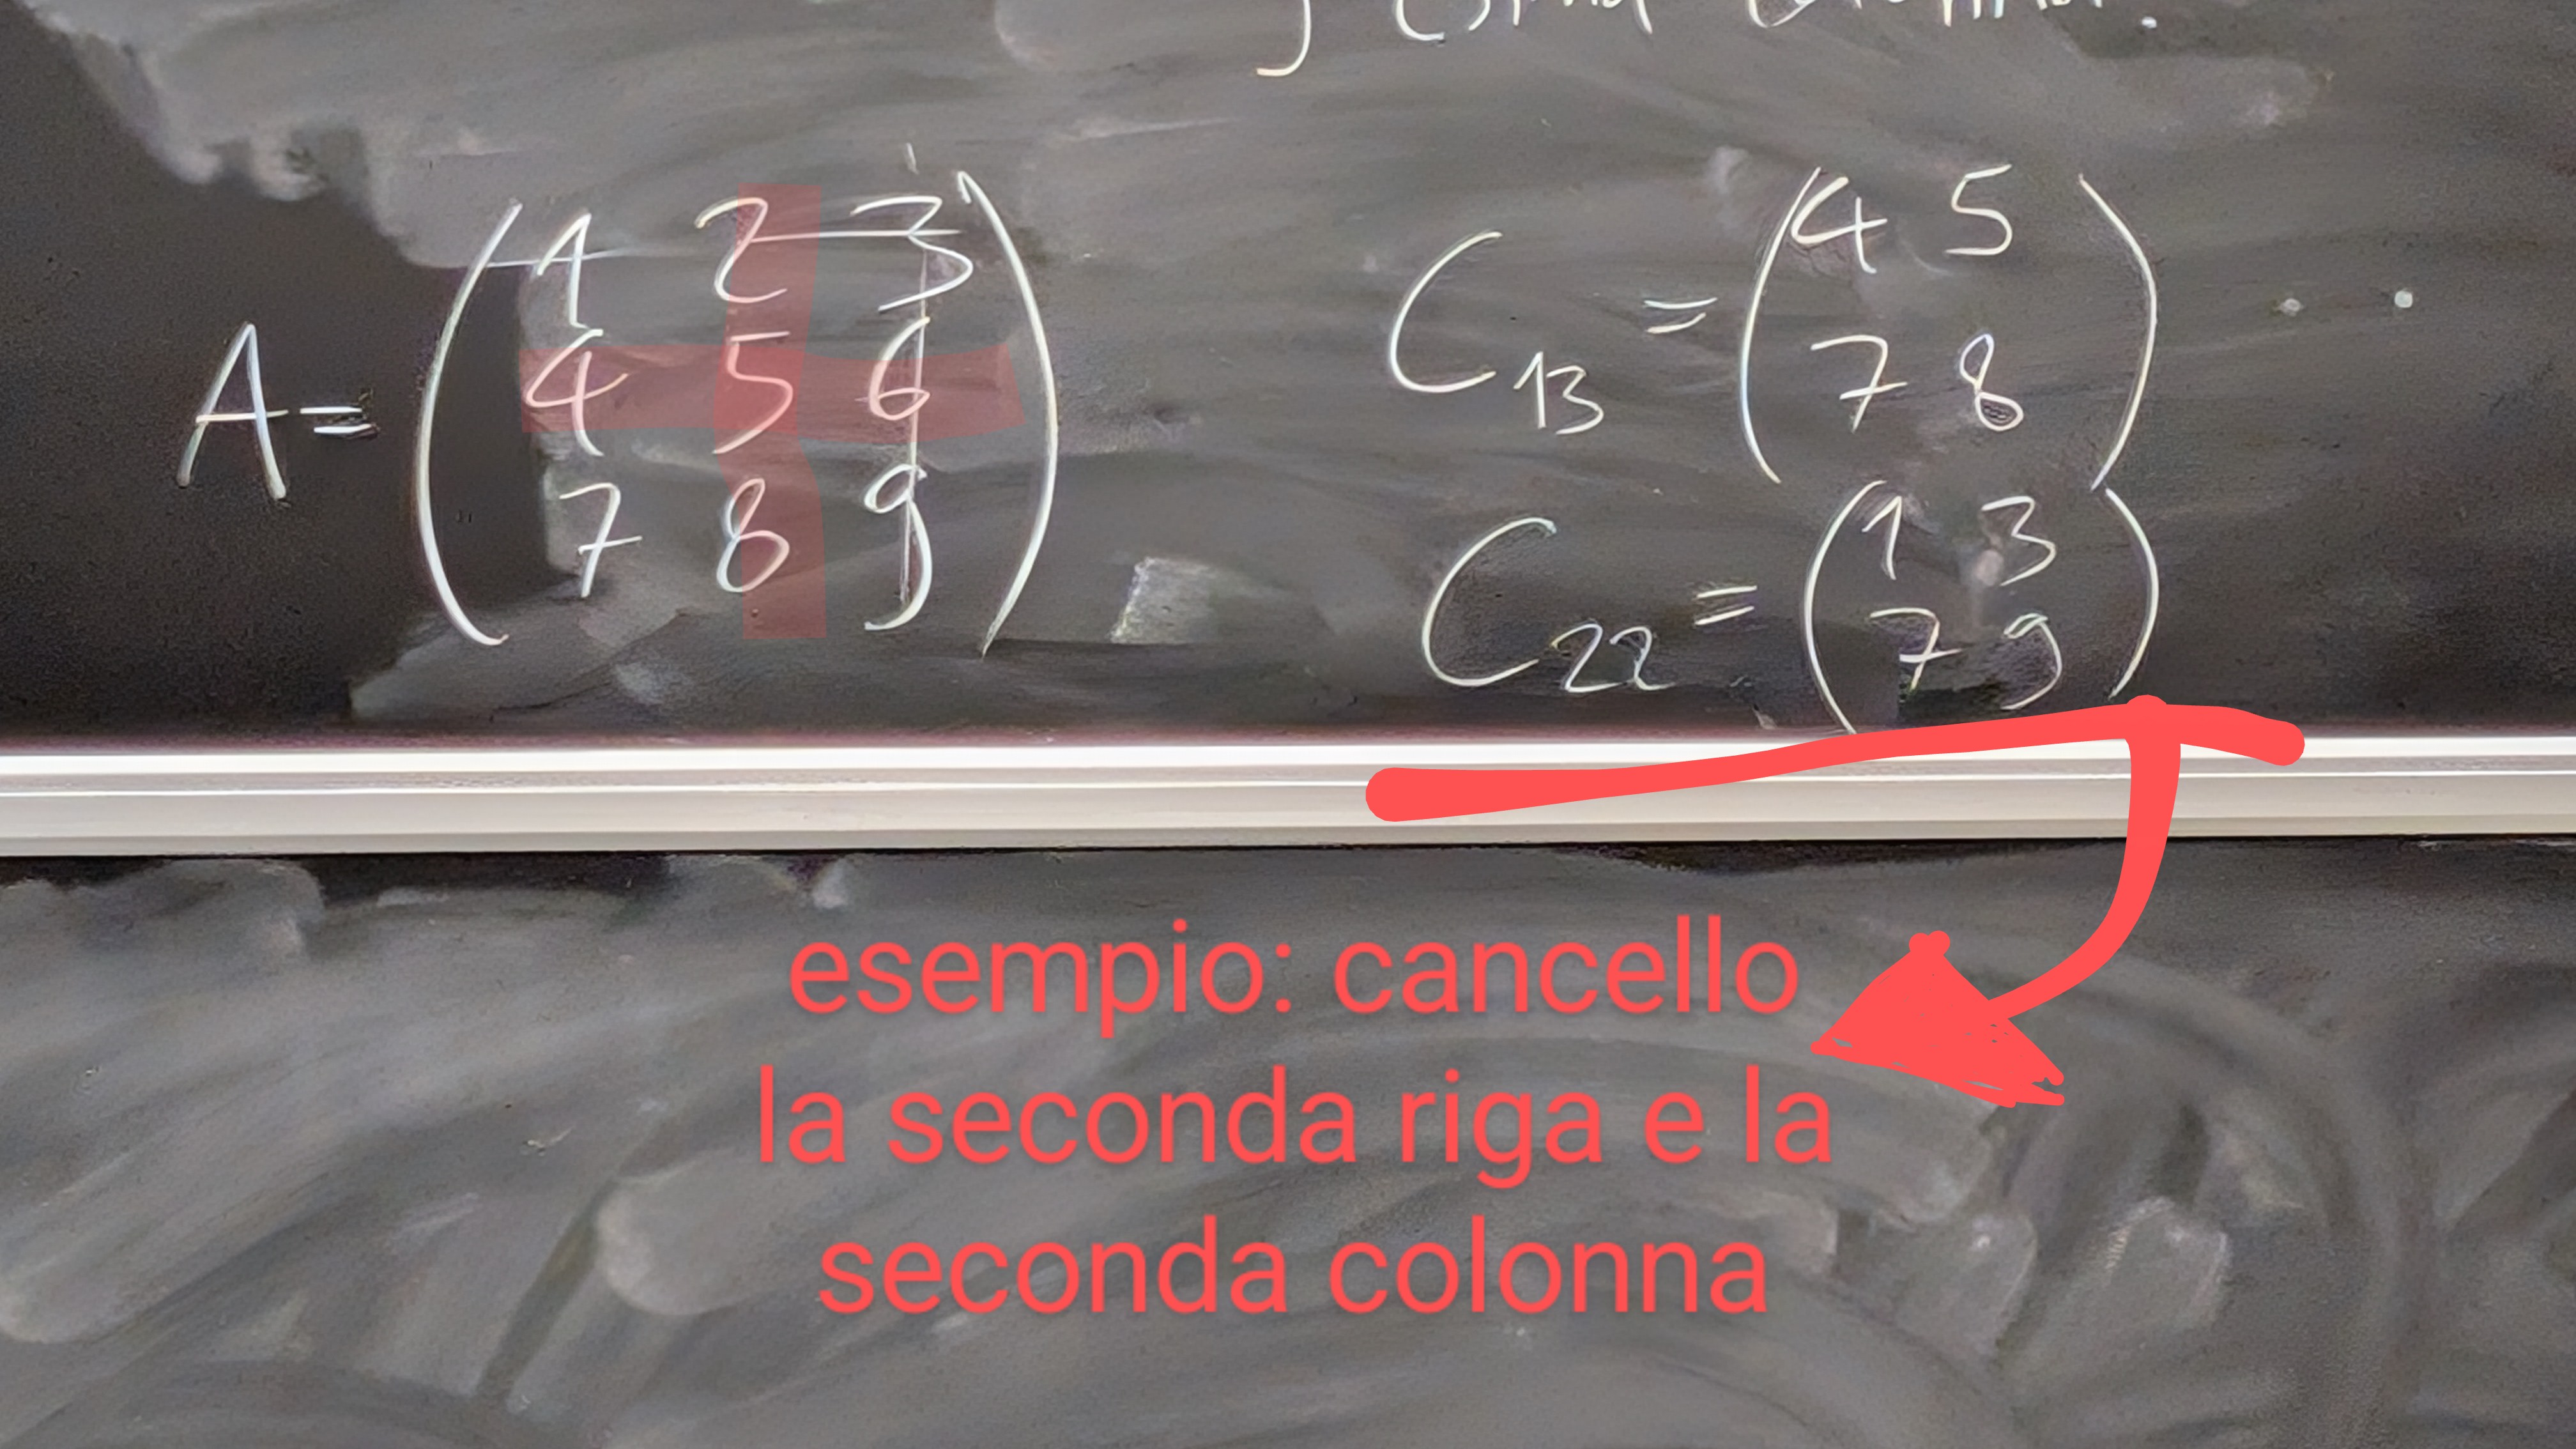 A = ( 1 2 3
4 5 6
7 8 9 )
C₁₃ = ( 4 5
7 8 ) . .
C₂₂ = ( 1 3
7 9 )
esempio: cancello
la seconda riga e la
seconda colonna